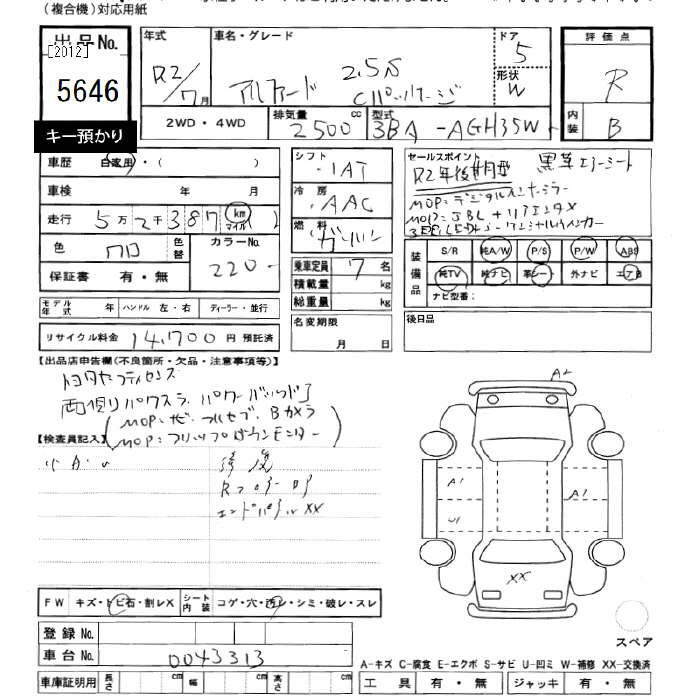 (複合機)対応用紙
出品No.
[2012]
5646
キー預かり
年式 車名・グレード ドア 5 評価点
R2/7月 アルファード 2.5S Cパッケージ 形状 W R
2WD・4WD 排気量 2500cc 型式 3BA-AGH35W 内装 B
車歴 自家用・( )
車検 年 月
走行 5万2千387 km マイル
色 クロ 色替 カラーNo. 220
保証書 有・無
モデル年式 年 ハンドル 左・右 ディーラー・並行
リサイクル料金 14,700円 預託済
シフト IAT
冷房 AAC
燃料 ガソリン
乗車定員 7名
積載量 kg
総重量 kg
名変期限
月 日
セールスポイント 黒革エアーシート
R2年後期型
MOP=デジタルインナーミラー
MOP=JBL+リアエンタX
3眼LEDヘッド シーケンシャルウインカー
装備品 S/R 純A/W P/S P/W ABS
純TV 純ナビ 革シート 外ナビ エアB
ナビ型番:
後日品
【出品店申告欄(不良箇所・欠品・注意事項等)】
トヨタセーフティセンス
両側パワスラ、パワーバックドア
(MOP=ナビ・フルセグ・Bカメラ
MOP=フリップダウンモニター)
【検査員記入】
修復
Rフロアー
エンドパネルXX
A2
A1 A1
U1
XX
FW キズ・トビ石・割レX シート内装 コゲ・穴・汚レ・シミ・破レ・スレ
登録No.
車台No. 0043313
車庫証明用 長さ cm 幅 cm 高さ cm
スペア
A-キズ C-腐食 E-エクボ S-サビ U-凹ミ W-補修 XX-交換済
工具 有・無 ジャッキ 有・無